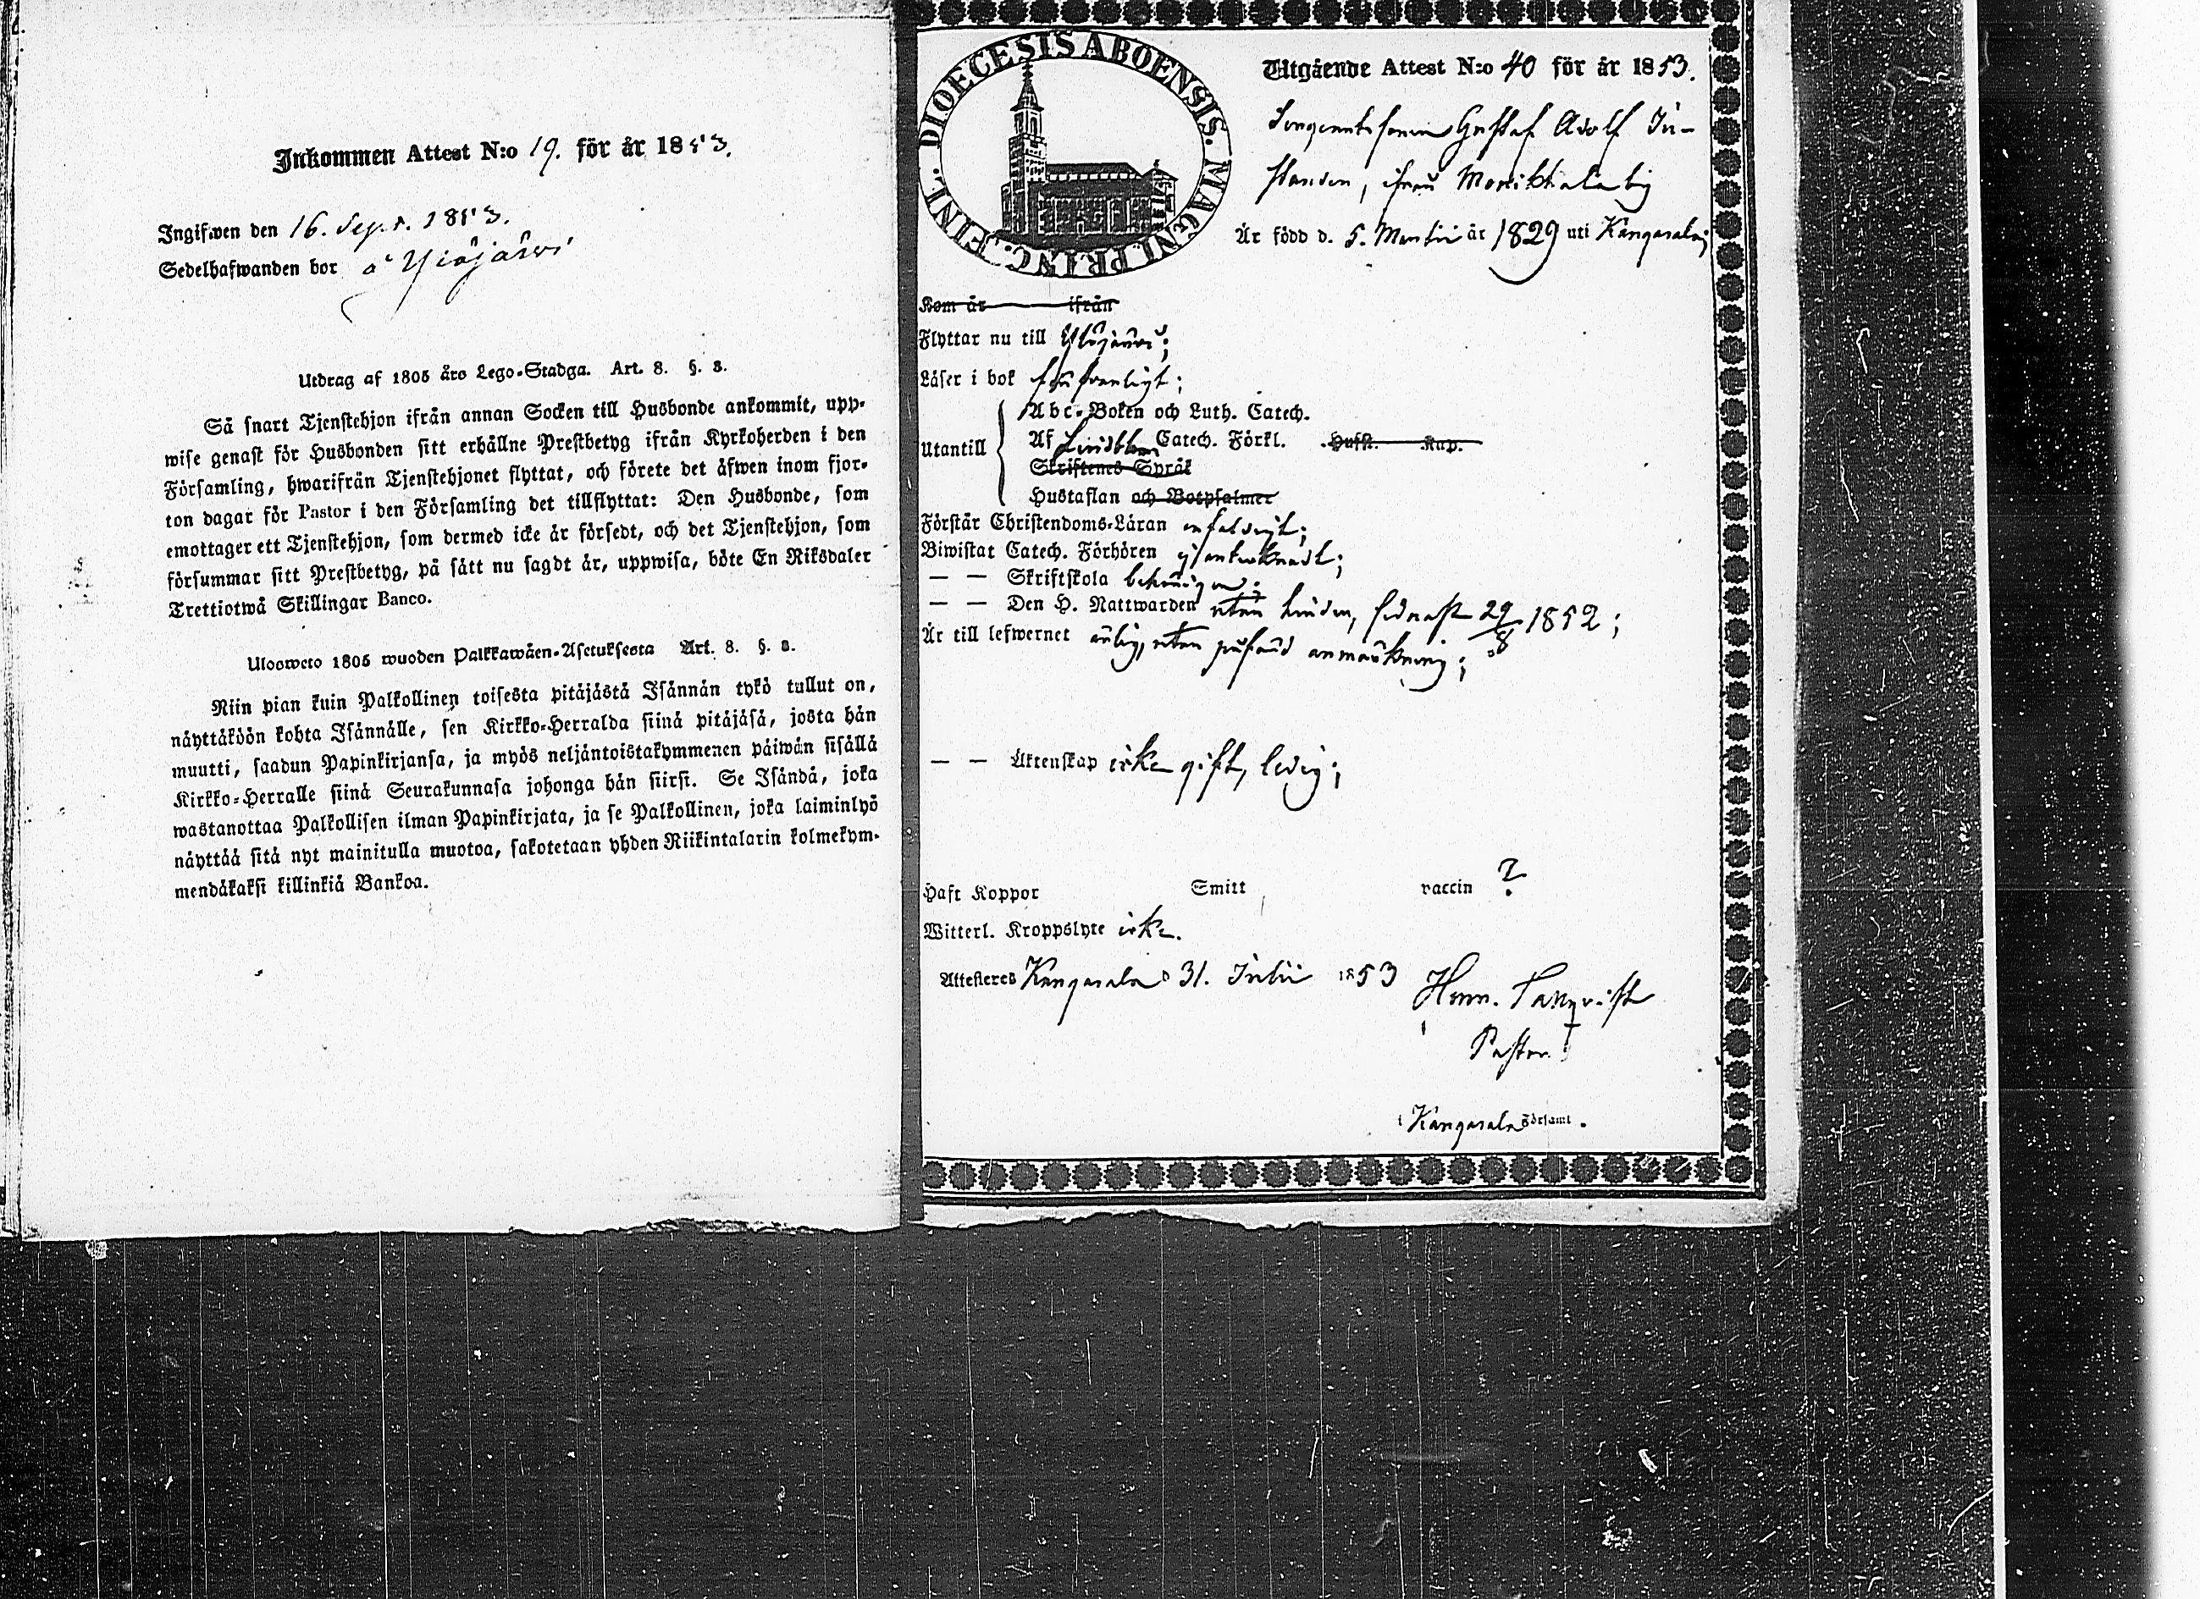 Inkommen Attest N:o 19. för år 1853.
Ingifwen den 16. Sept. 1853.
Sedelhafwanden bor å Ylöjärwi
Utdrag af 1805 års Lego-Stadga. Art. 8. §. 3.
Så snart Tjenstehjon ifrån annan Socken till Husbonde ankommit, upp-
wise genast för Husbonden sitt erhållne Prestbetyg ifrån Kyrkoherden i den
Församling, hwarifrån Tjenstehjonet flyttat, och förete det äfwen inom fjor-
ton dagar för Pastor i den Församling det tillflyttat: Den Husbonde, som
emottager ett Tjenstehjon, som dermed icke är försedt, och det Tjenstehjon, som
försummar sitt Prestbetyg, på sätt nu sagdt är, uppwisa, böte En Riksdaler
Trettiotwå Skillingar Banco.
Ulosweto 1805 wuoden Palkkawäen-Asetuksesta Art. 8. §. 3.
Niin pian kuin Palkollinen toisesta pitäjästä Isännän tykö tullut on,
näyttäköön kohta Isännälle, sen Kirkko-Herralda siinä pitäjäsä, josta hän
muutti, saadun Papinkirjansa, ja myös neljäntoistakymmenen päiwän sisällä
Kirkko-Herralle siinä Seurakunnasa johonga hän siirsi. Se Isändä, joka
wastanottaa Palkollisen ilman Papinkirjata, ja se Palkollinen, joka laiminlyö
näyttää sitä nyt mainitulla muotoa, sakotetaan yhden Riikintalarin kolmekym-
mendäkaksi killinkiä Bankoa.
DIOECESIS ABOENSIS. MAGNI PRINC. FINL.
Utgående Attest N:o 40 för år 1853.
Gustaf Adolf Ju-
, ifrån by
Är född d. 5. Martii år 1829 uti Kangasala;
Kom år ifrån
Flyttar nu till Ylöjärwi;
Läser i bok försvarligt;
Utantill
Abc-Boken och Luth. Catech.
Af Lindbloms Catech. Förkl. Husst. Kap.
Skriftenes Språk
Hustaflan och Botpsalmer
Förstår Christendoms-Läran enfaldigt;
Biwistat Catech. Förhören ;
— — Skriftskola behörigen;
— — Den H. Nattwarden utan hinder, sednast 29/8 1852;
Är till lefwernet ärlig, utan påförd anmärkning;
— — Äktenskap icke gift, ledig;
Haft Koppor Smitt vaccin ?
Witterl. Kroppslyte icke.
Attesteres Kangasala d 31. Julii 1853 Henr. Tallqvist
Pastor
i Kangasala Församl.